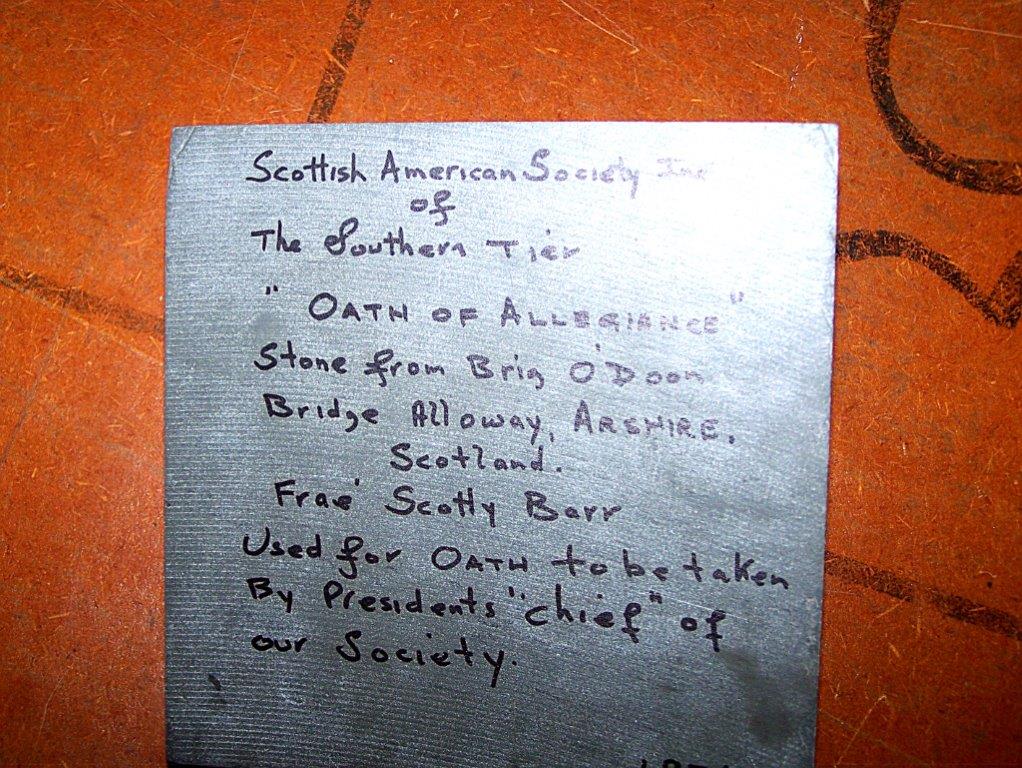 Scottish American Society Inc
of
The Southern Tier
" OATH OF ALLEGIANCE "
Stone from Brig O'Doon
Bridge Alloway, ARSHIRE.
Scotland.
Frae' Scotty Barr
Used for OATH to be taken
By Presidents "chief" of
our Society.